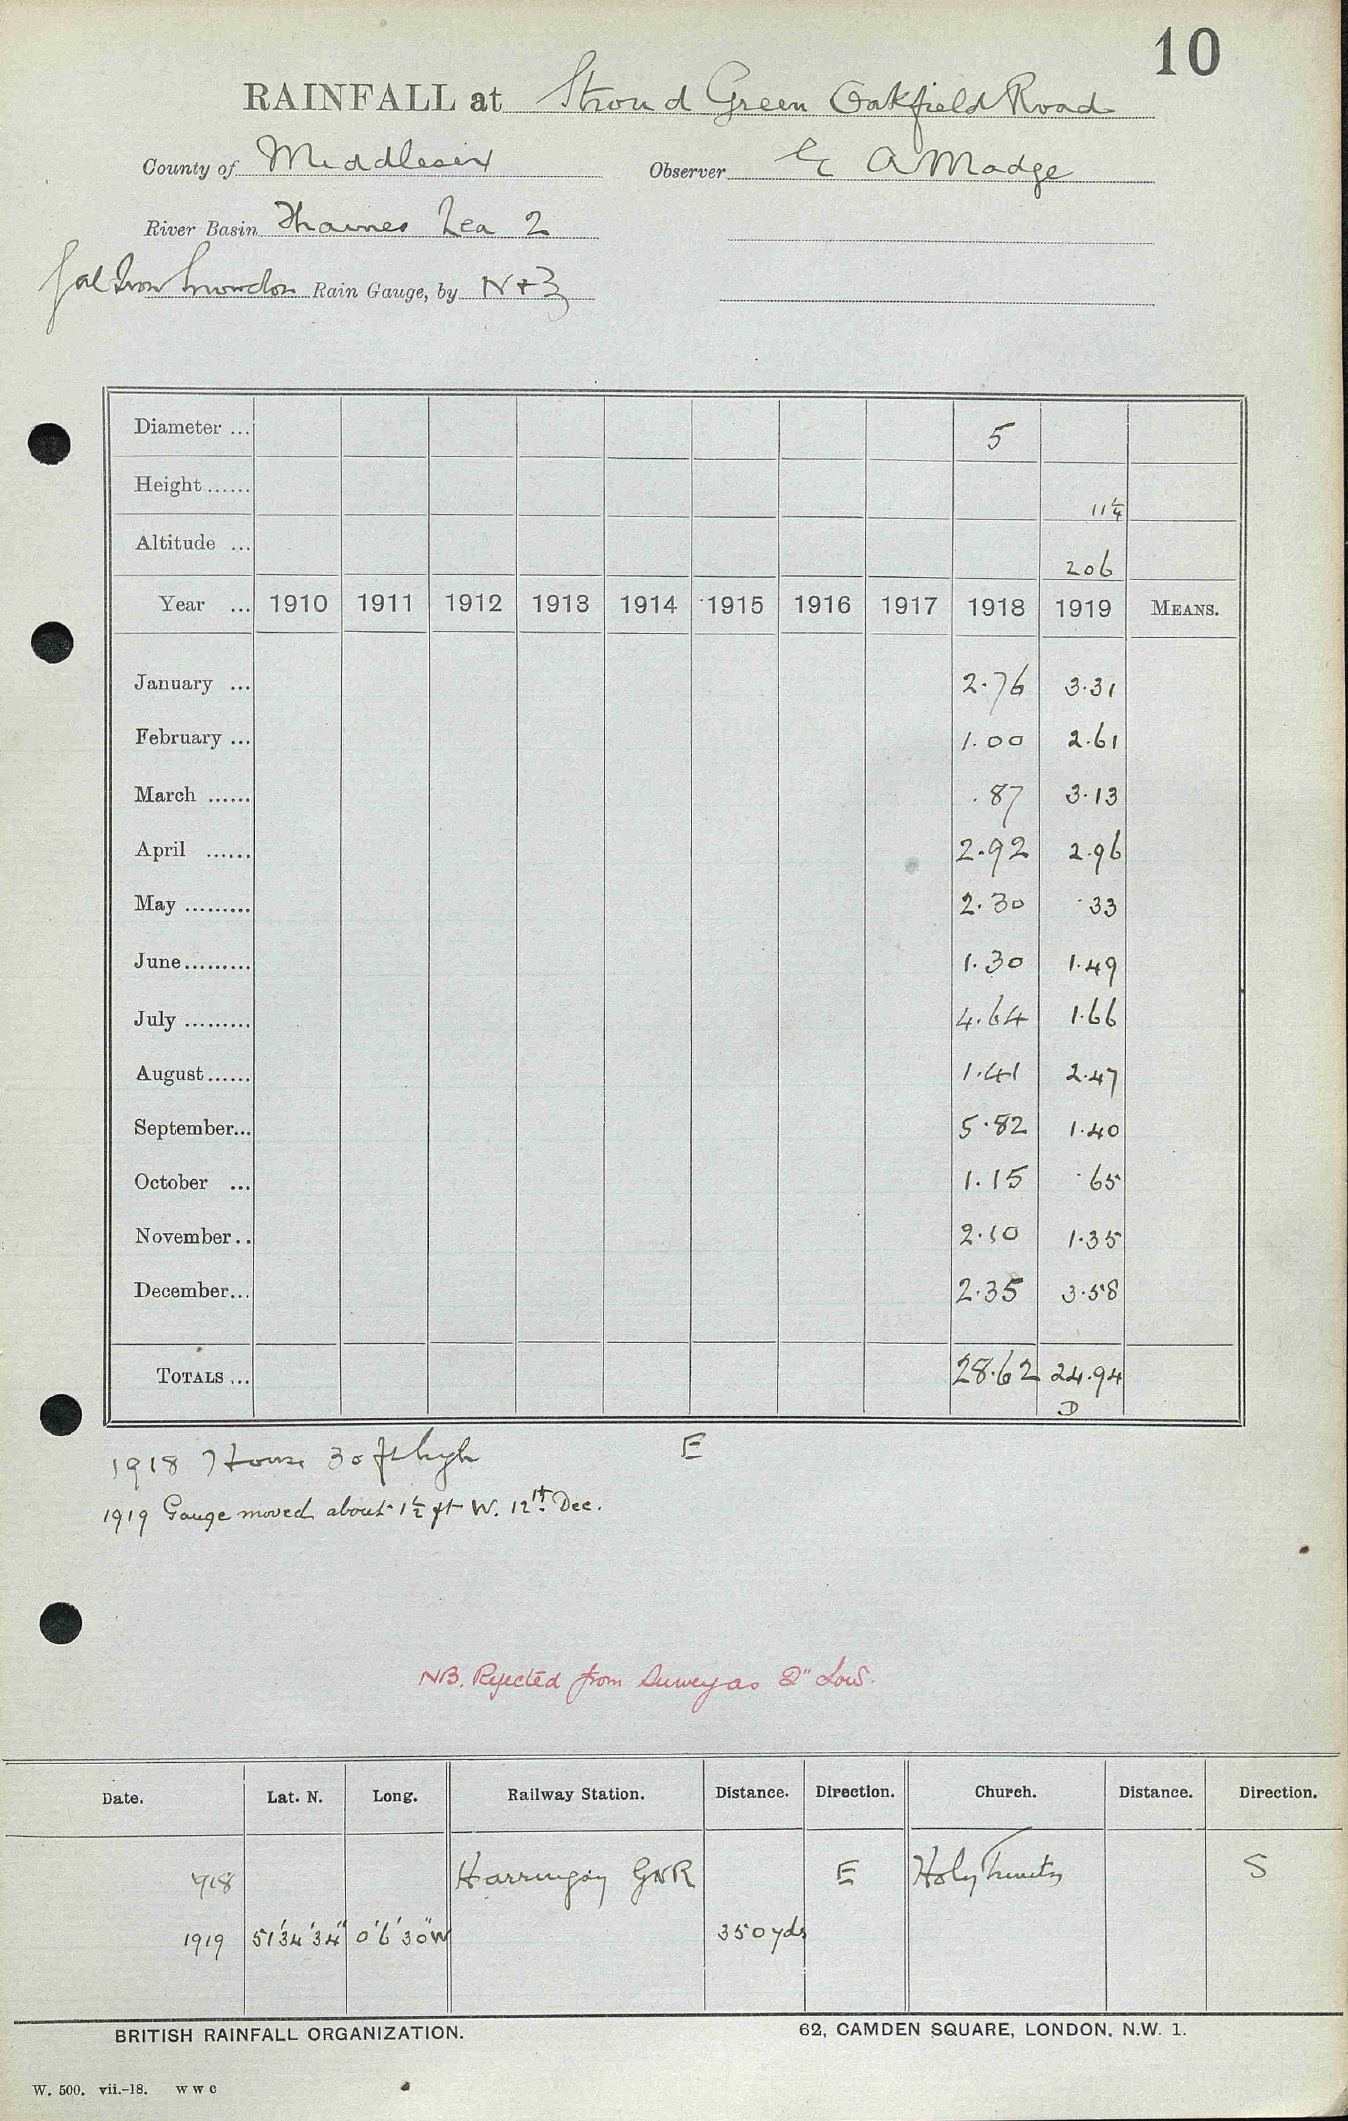 10
RAINFALL at Stroud Green Oakfield Road
County of Middlesex Observer E A Madge
River Basin Thames Lea 2
Gal Iron Snowdon Rain Gauge, by N+Z
Diameter ... 5
Height ...... 11¼
Altitude ... 206
Year ... 1910 1911 1912 1913 1914 1915 1916 1917 1918 1919 MEANS.
January ... 2.76 3.31
February ... 1.00 2.61
March ...... .87 3.13
April ...... 2.92 2.96
May ......... 2.30 .33
June ......... 1.30 1.49
July ......... 4.64 1.66
August ...... 1.41 2.47
September... 5.82 1.40
October ... 1.15 .65
November.. 2.10 1.35
December... 2.35 3.58
TOTALS ... 28.62 24.94
D
1918 House 30 ft high E
1919 Gauge moved about 1½ ft W. 12th Dec.
NB. Rejected from Survey as 2" Low.
Date. Lat. N. Long. Railway Station. Distance. Direction. Church. Distance. Direction.
918 Harringay GNR E Holy Trinity S
1919 51°34'34" 0°6'30"W 350 yds
BRITISH RAINFALL ORGANIZATION. 62, CAMDEN SQUARE, LONDON, N.W. 1.
W. 500. vii.-18. W W C